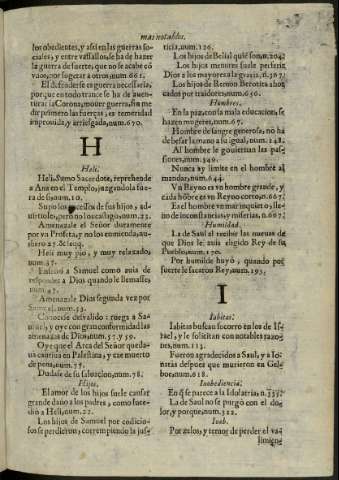 mas notables.
los obedientes, y assi en las guerras so-
ciales, y entre vassallos, se ha de hazer
la guerra de suerte, que no se acabe cō
vnos, por sugetar a otros, num. 661.
El defenderse en guerra necessaria,
por que en todo trance se ha de auen-
turar la Corona, mouer guerra, sin me
dir primero las fuerças, es temeridad
improuida, y arriesgada, num. 670.
H
Heli.
Heli, Sumo Sacerdote, reprehende
a Ana en el Templo, juzgandola fue-
ra de si, num. 10.
Supo los excessos de sus hijos, ad-
uirtiolo, pero no los castigo, num. 23.
Amenazale el Señor duramente
por vn Profeta, y no los enmienda, nu-
mero 27. & seqq.
Heli muy pio, y muy relaxado,
num. 37.
Enseñó a Samuel como auia de
responder a Dios quando le llamasse,
num. 47.
Amenazale Dios segunda vez por
Samuel, num. 53.
Conocese desvalido: ruega a Sa-
muel, y oye con gran conformidad las
amenazas de Dios, num. 57. y 59.
Oye que el Arca del Señor queda-
ua cautiua en Palestina, y cae muerto
de pena, num. 75.
Dudase de su saluacion, num. 78.
Hijos.
El amor de los hijos suele causar
grande daño a los padres, como suce-
dio a Heli, num. 22.
Los hijos de Samuel por codicio-
sos se perdieron, corrompiendo la jus-
ticia, num. 126.
Los hijos de Belial quiē son, n. 204.
Los hijos menores suele preferir
Dios a los mayores a la gracia, n. 367.
Los hijos de Remon Berotita ahor
cados por traidores, num. 650.
Hombres.
En la plaza ronsa mala educacion, se
hazen mugeres, num. 67.
Hombre de sangre generosa, no ha
de besar la mano a su igual, num. 148.
Al hombre le gouiernan las pas-
siones, num. 349.
Nunca ay limite en el hombre al
mandar, num. 644.
Vn Reyno es vn hombre grande, y
cada hōbre es vn Reyno corto, n. 667.
Es el hombre vn mar inquieto, lle-
no de inconstancias, y miserias, n. 667.
Humildad.
La de Saul al recibir las nueuas de
que Dios le auia elegido Rey de su
Pueblo, num. 170.
Por humilde huyò, quando por
fuerte le sacaron Rey, num. 193.
I
Iabitas.
Iabitas buscan socorro en los de Is-
rael, y le solicitan con notables razo-
nes, num. 213.
Fueron agradecidos a Saul, y a Io-
natàs despues que murieron en Gel-
boe, num. 618.
Inobediencia.
En q̄ se parece a la Idolatria, n. 335.
La de Saul no se purgò con el do-
lor, y porque, num. 322.
Ioab.
Por zelos, y temor de perder el va-
limien-